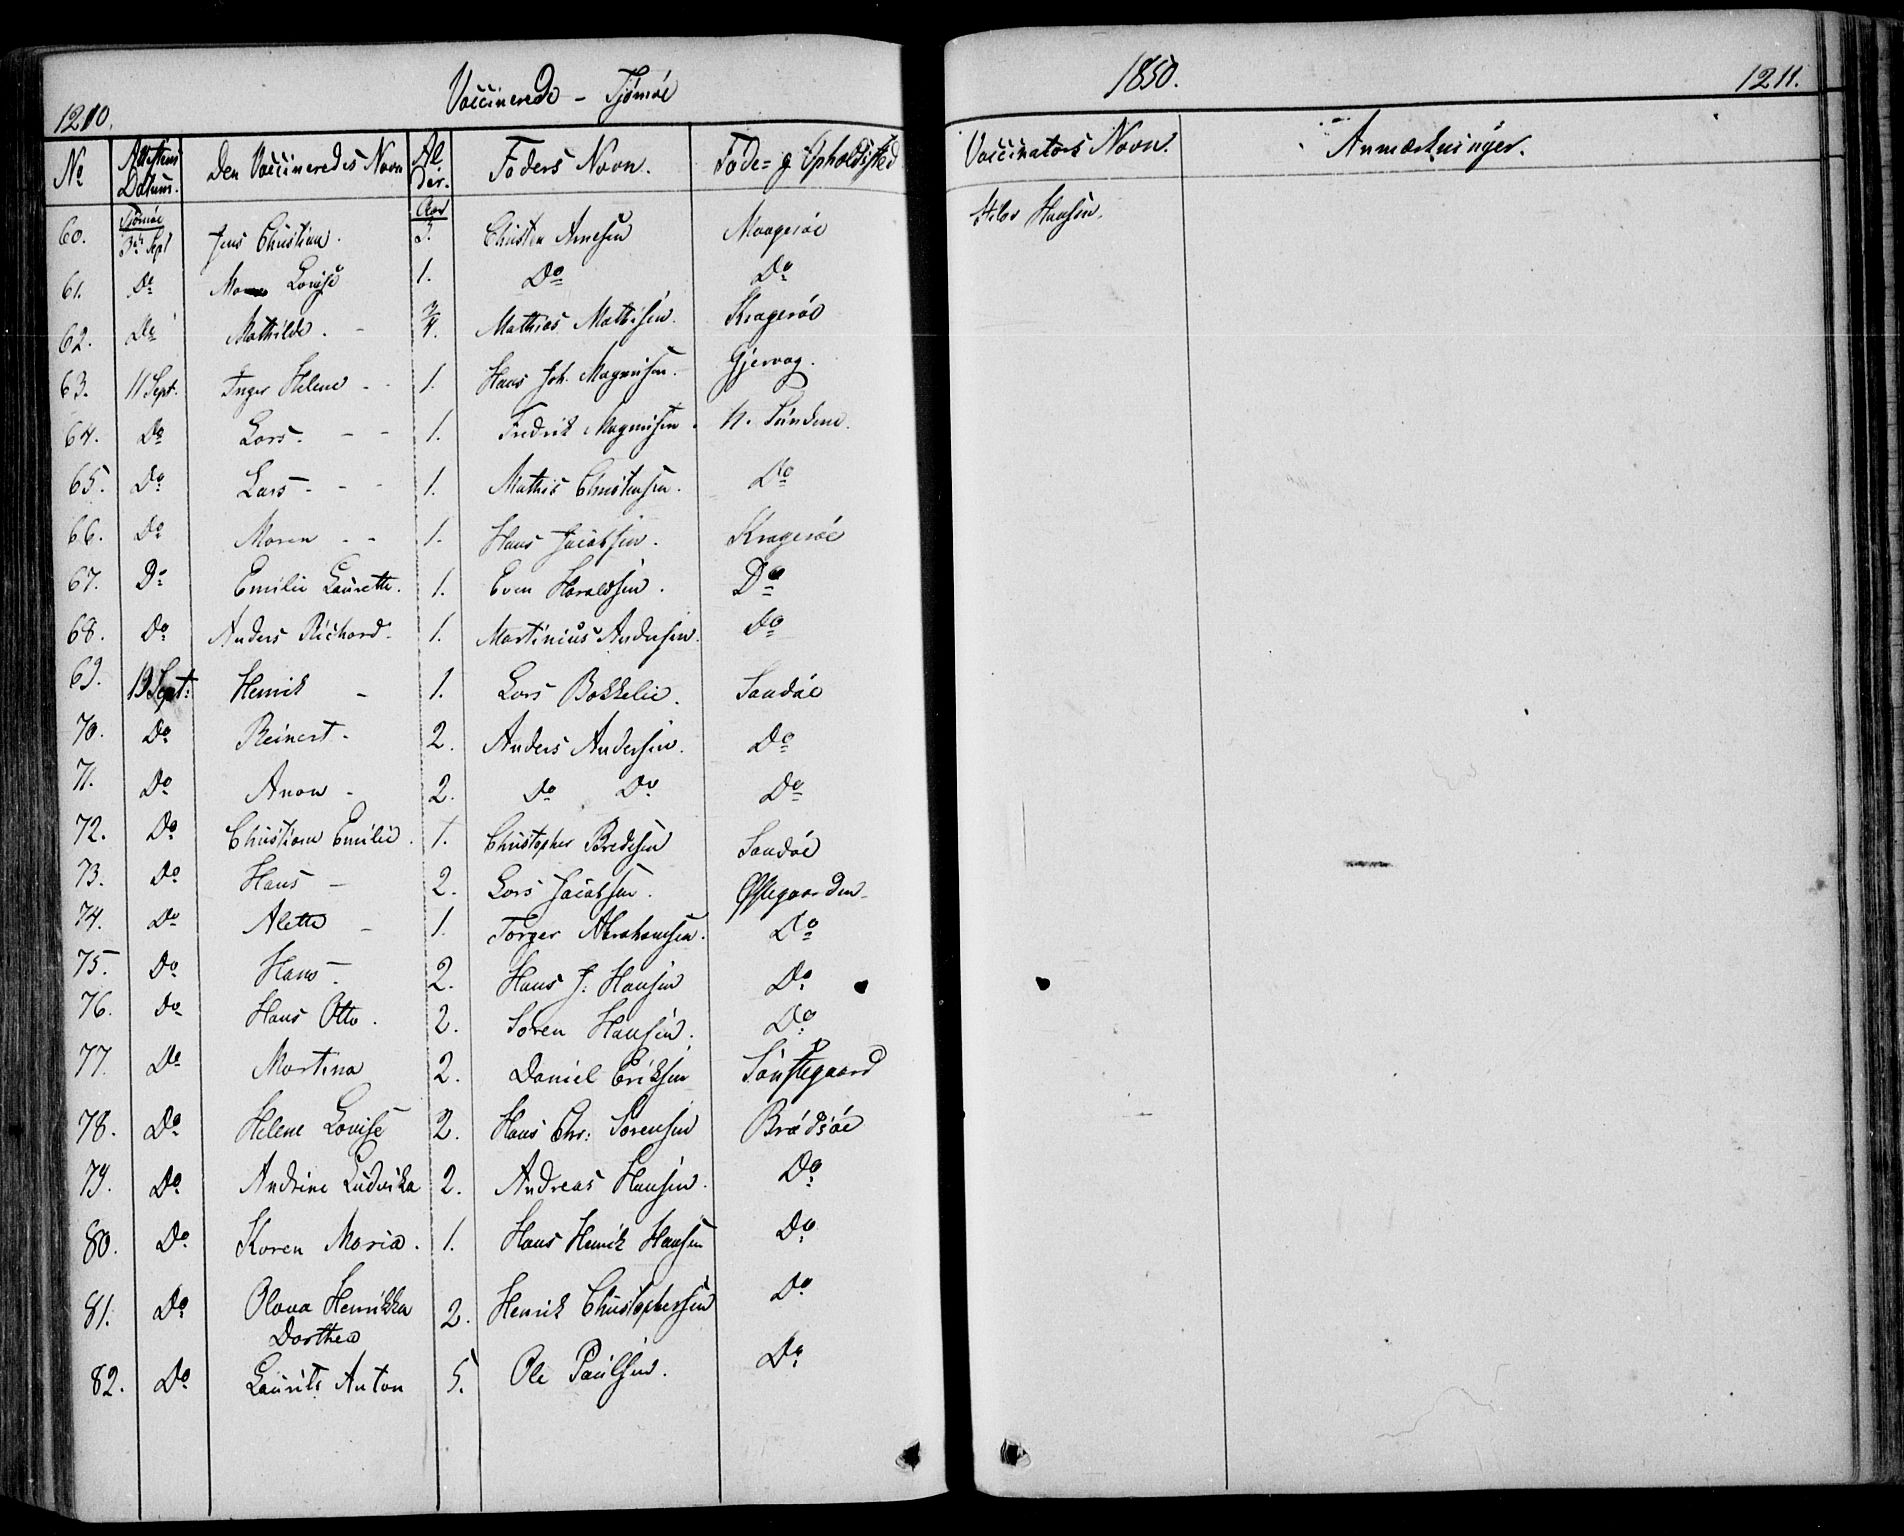 1210.
Vaccinerede - Tjømøe
No Attestens Datum. Den Vaccineredes Navn Alder. Faders Navn. Føde- og Opholdssted
60. Tjømøe 3die Sept Jens Christian. Aar 3. Christen Arnesen Maagerøe
61. Do Lovise 1. Do Do
62. Do Mathilde. - 3/4. Mathias Mathisen. Kragerøe
63. 11 Sept. Inger Helene - - 1. Hans Joh. Magnusen. Gjervaag.
64. Do Lars. - - 1. Fredrik Magnusen. N. Sundene.
65. Do Lars - - - 1. Mathis Christensen. Do
66. Do Maren - - 1. Hans Jacobsen. Kragerøe
67. Do Emilie Laurette. 1. Even Haraldsen. Do
68. Do Anders Richard. 1. Martinius Andersen. Do
69. 13 Sept: Henrik - 1. Lars Bakkelie. Sandøe
70. Do Reinert - 2. Anders Andersen. Do
71. Do - 2. Do Do Do
72. Do Christiane Emilie. 1. Christopher Bredesen Sandøe
73. Do Hans - 2. Lars Jacobsen. Østegaarden
74. Do Alette - 1. Torger Abrahamsen. Do
75. Do Hans - 2. Hans J. Hansen Do
76. Do Hans Otto. 2. Søren Hansen. Do
77. Do Martina 2. Daniel Eriksen Sønstegaard
78. Do Helene Lovise 2. Hans Chr: Sørensen Brødsøe
79. Do Andrine Ludvika 2. Andreas Hansen. Do
80. Do Karen Maria. 1. Hans Henrik Hansen Do
81. Do Olava Henrikka Dorthea 2. Henrik Christophersen Do
82. Do Laurits Anton 5. Ole Paulsen. Do
1850.
1211.
Vaccinators Navn. Anmærkninger.
Hansen.